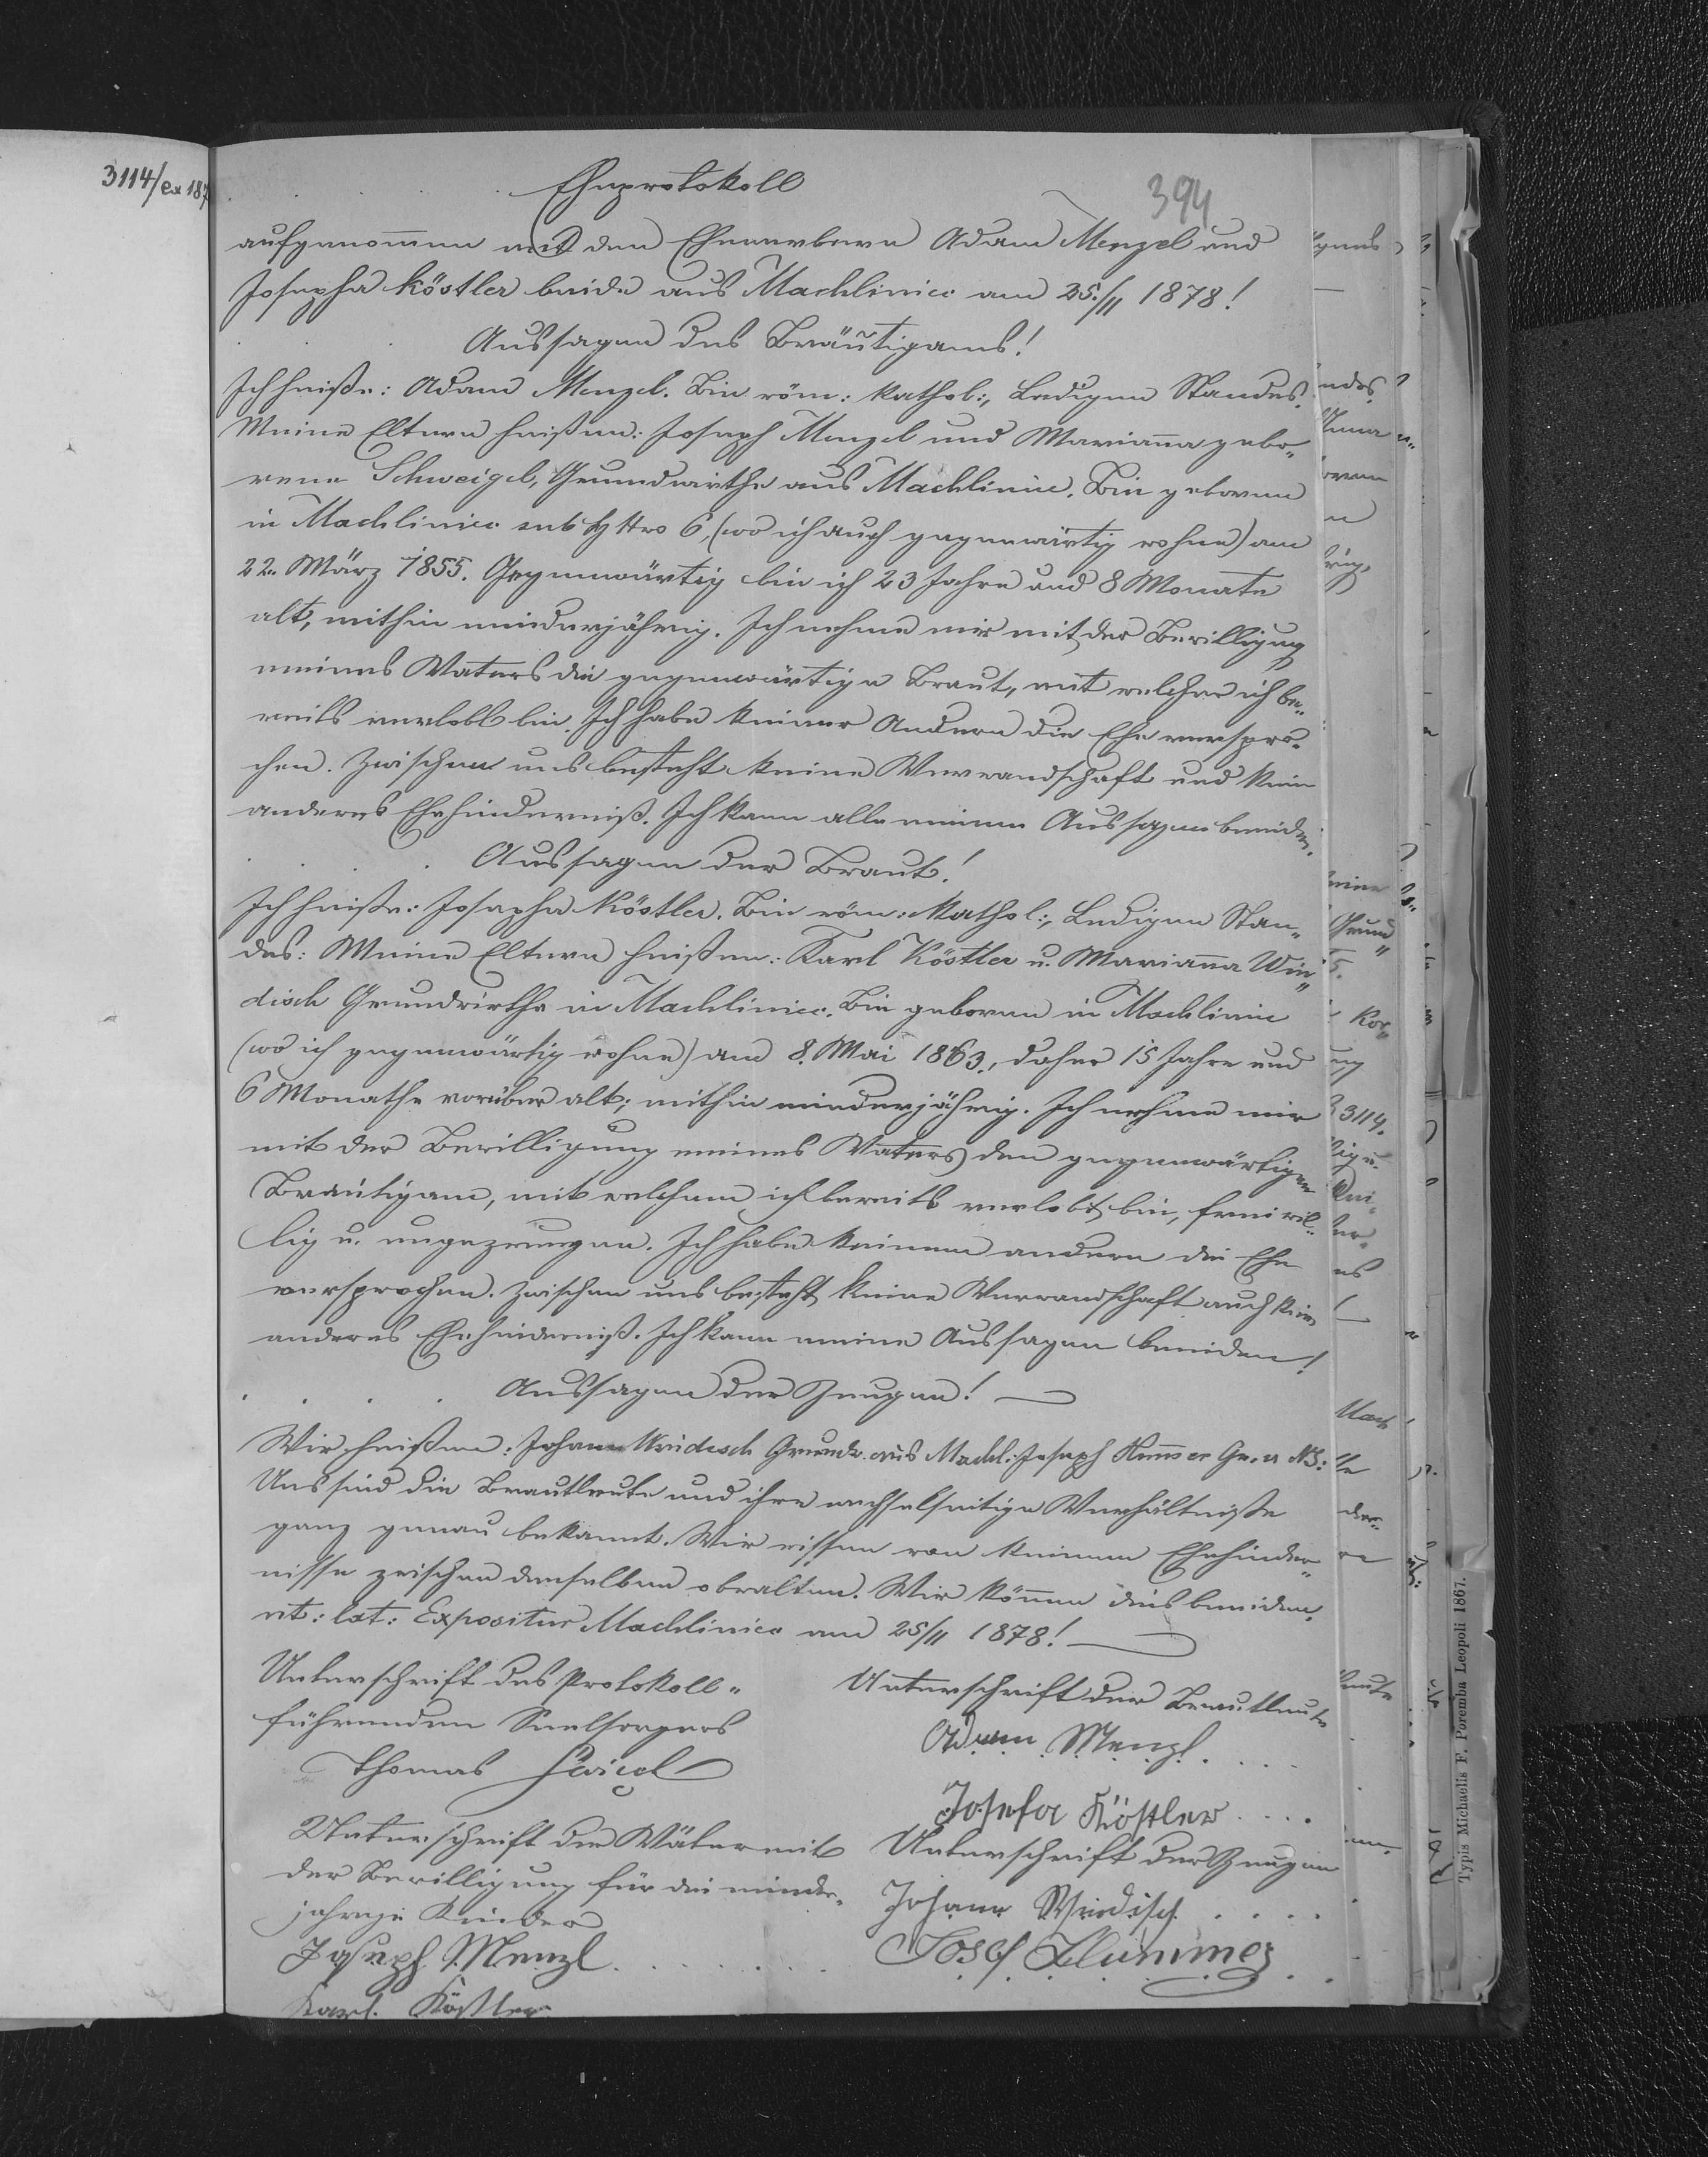 3114/ex 187
Eheprotokoll
394
aufgenommen mit den Ehewerbern Adam Menzel und
Josepha Köstler beide aus Machliniec am 25./11 1878!
Aussagen des Bräutigams!
Ich heiße: Adam Menzel. Bin röm: kathol:, Ledigen Standes.
Meine Eltern heißen: Joseph Menzel und Marianna gebo„
rene Schweigel, Grundwirthe aus Machliniec. Bin geboren
in Machliniec sub H Nro 6, (wo ich auch gegenwärtig wohne) am
22. März 1855. Gegenwärtig bin ich 23 Jahre und 8 Monate
alt, mithin minderjährig. Ich nehme mir mit der Bewilligung
meines Vaters die gegenwärtige Braut, mit welcher ich be„
reits verlobt bin. Ich habe keiner Andern die Ehe verspro„
chen. Zwischen uns besteht keine Verwandschaft und kein
anderes Ehehinderniß. Ich kann alle meine Aussagen beeiden.
Aussagen der Braut!
Ich heiße: Josepha Köstler. Bin röm: Kathol:, Ledigen Stan„
des: Meine Eltern heißen: Karl Köstler u. Marianna Win„
disch Grundwirthe in Machliniec. Bin geboren in Machliniec
(wo ich gegenwärtig wohne) am 8. Mai 1863., daher 15 Jahre und
6 Monathe vorüber alt; mithin minderjährig. Ich nehme mir
mit der Bewilligung meines Vaters den gegenwärtigen
Bräutigam, mit welchem ich bereits verlobt bin, freiwil„
lig u. ungezwungen. Ich habe keinem andern die Ehe
versprochen. Zwischen uns besteht keine Verwandschaft auch kein
anderes Ehehinderniß. Ich kann meine Aussagen beeiden!
Aussagen der Zeugen! —
Wir heißen: Johann Windisch Grundw. aus Machl: Joseph
Uns sind die Brautleute und ihre wechselseitige Verhältniße
ganz genau bekannt. Wir wissen von keinem Ehehinder„
nisse zwischen denselben obwalten. Wir können dies beeiden.
rit: lat: Expositur Machliniec am 25/11 1878! —
Unterschrift des Protokoll„
führenden Seelsorgers
Thomas
Unterschrift der Brautleute
Adam Menzl.
Josefa Köstler
Unterschrift der Väter mit
der Bewilligung für die minder„
jährige Kinder
Joseph Menzl
Karl. Köstler
Unterschrift der Zeugen
Johann Windisch
Josef
3114.
Typis Michaelis F. Poremba Leopoli 1867.